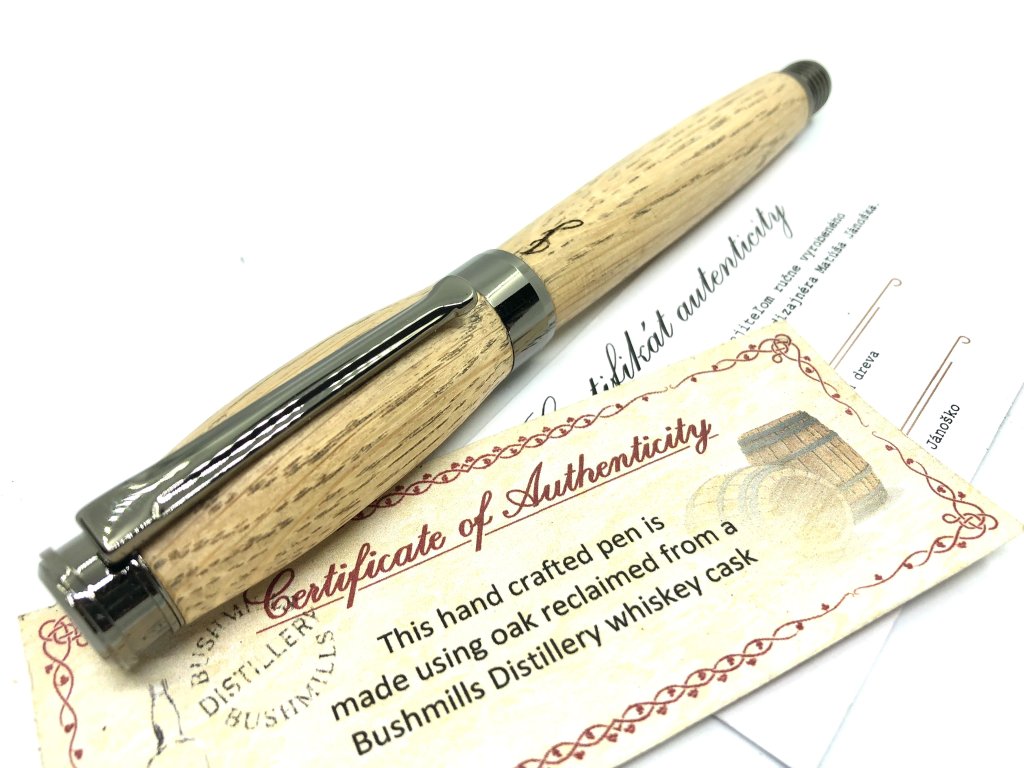 Certifikát autenticity
ručne vyrobeného
dizajnéra Matúša Jánoška.
dreva
Jánoško
Certificate of Authenticity
This hand crafted pen is
made using oak reclaimed from a
Bushmills Distillery whiskey cask
DISTILLERY
BUSHMILLS